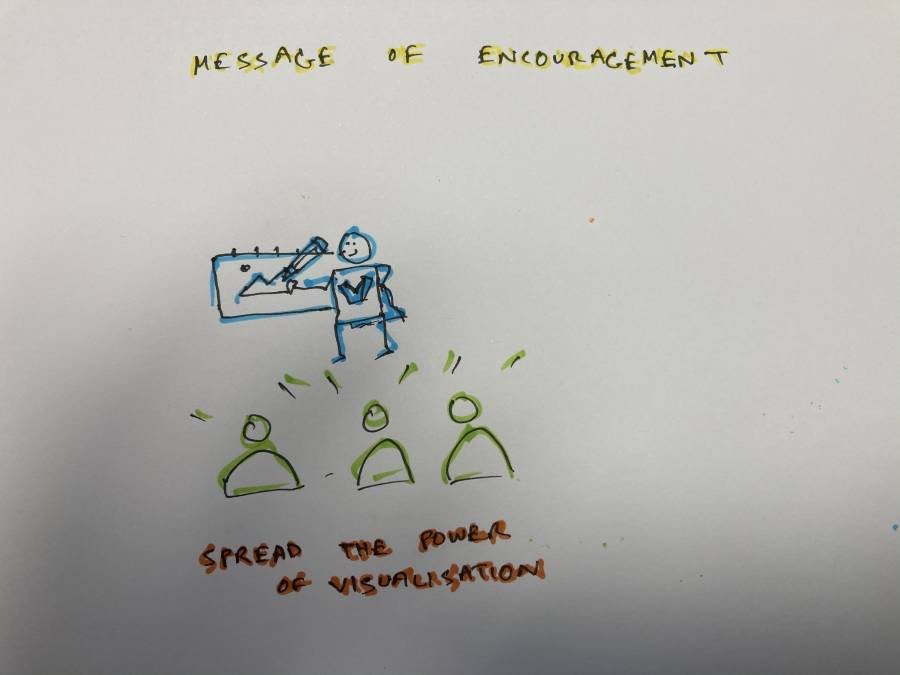 MESSAGE OF ENCOURAGEMENT
SPREAD THE POWER
OF VISUALISATION